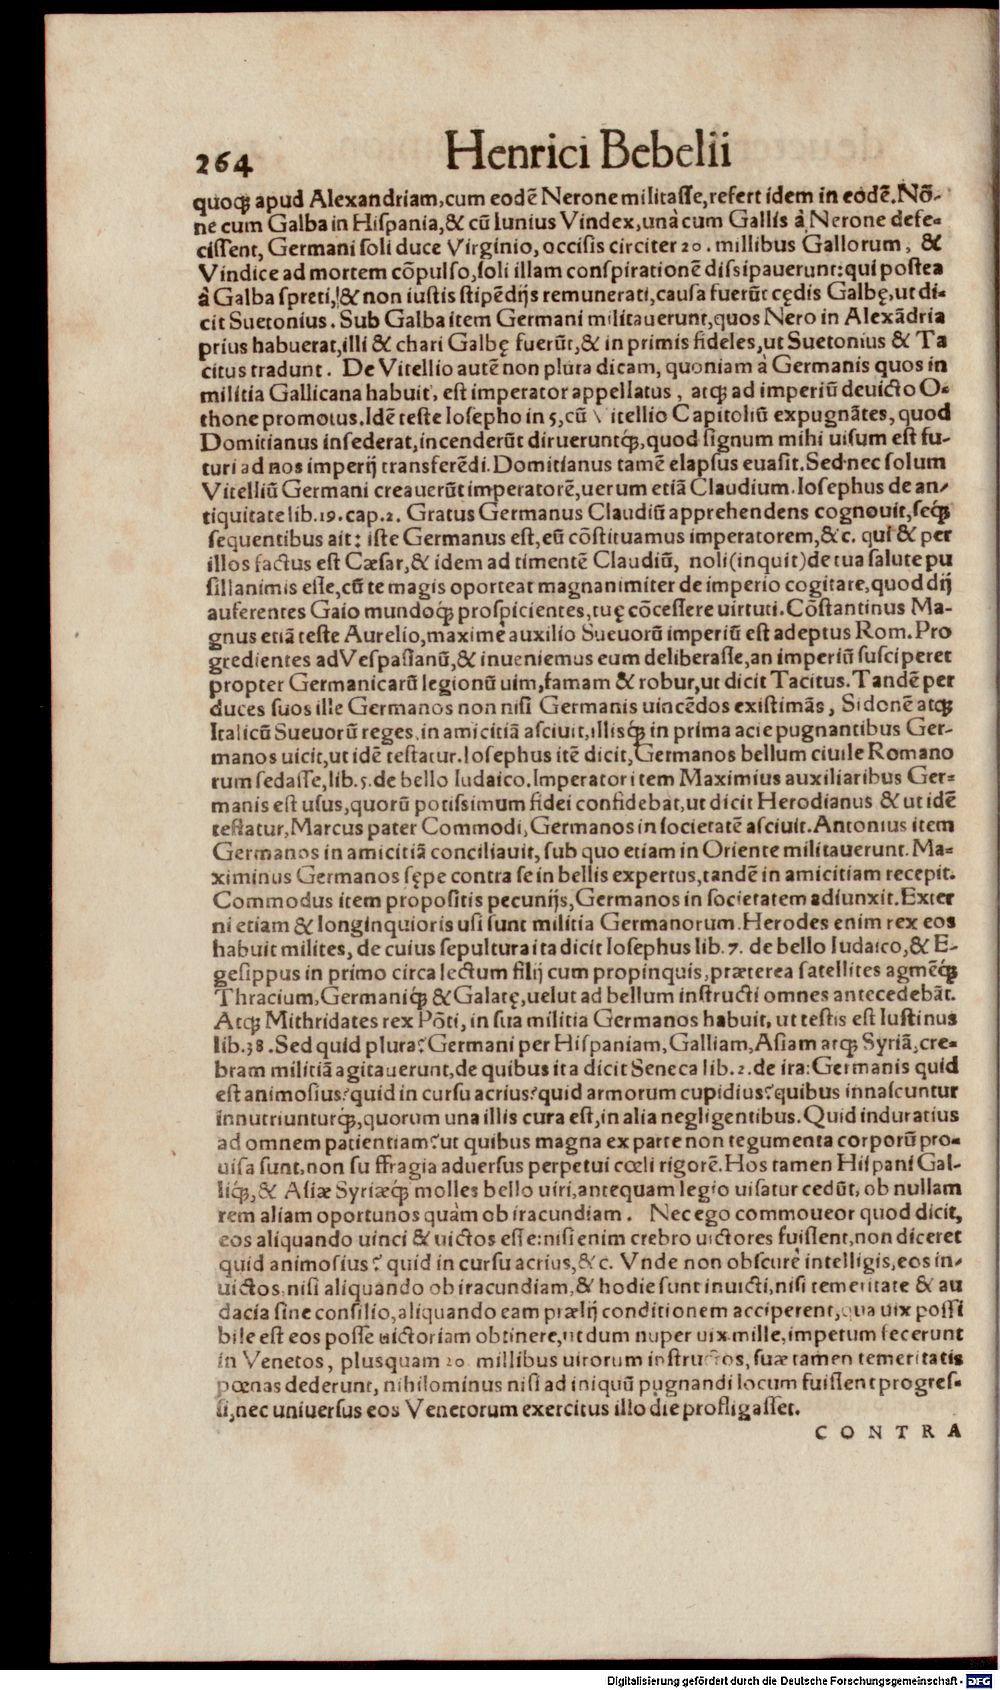 264 Henrici Bebelii
quoq; apud Alexandriam, cum eodē Nerone militaſſe, refert idem in eodē. Nō-
ne cum Galba in Hiſpania, & cū Iunius Vindex, unà cum Gallis à Nerone defe-
ciſſent, Germani ſoli duce Virginio, occiſis circiter 20. millibus Gallorum, &
Vindice ad mortem cōpulſo, ſoli illam conſpirationē diſsipauerunt: qui poſtea
à Galba ſpreti, & non iuſtis ſtipēdijs remunerati, cauſa fuerūt cędis Galbę, ut di-
cit Suetonius. Sub Galba item Germani militauerunt, quos Nero in Alexādria
prius habuerat, illi & chari Galbę fuerūt, & in primis fideles, ut Suetonius & Ta
citus tradunt. De Vitellio autē non plura dicam, quoniam à Germanis quos in
militia Gallicana habuit, eſt imperator appellatus, atq; ad imperiū deuicto O-
thone promotus. Idē teſte Ioſepho in 5, cū Vitellio Capitoliū expugnātes, quod
Domitianus inſederat, incenderūt dirueruntq́;, quod ſignum mihi uiſum eſt fu-
turi ad nos imperij transferēdi. Domitianus tamē elapſus euaſit. Sed nec ſolum
Vitelliū Germani creauerūt imperatorē, uerum etiā Claudium. Ioſephus de an-
tiquitate lib. 19. cap. 2. Gratus Germanus Claudiū apprehendens cognouit, ſeq́;
ſequentibus ait: iſte Germanus eſt, eū cōſtituamus imperatorem, & c. qui & per
illos factus eſt Cæſar, & idem ad timentē Claudiū, noli (inquit) de tua ſalute pu
ſillanimis eſſe, cū te magis oporteat magnanimiter de imperio cogitare, quod dij
auferentes Gaio mundoq́; proſpicientes, tuę cōceſſere uirtuti. Cōſtantinus Ma-
gnus etiā teſte Aurelio, maximè auxilio Sueuorū imperiū eſt adeptus Rom. Pro
gredientes ad Veſpaſianū, & inueniemus eum deliberaſſe, an imperiū ſuſciperet
propter Germanicarū legionū uim, famam & robur, ut dicit Tacitus. Tandē per
duces ſuos ille Germanos non niſi Germanis uincēdos exiſtimās, Sidonē atq;
Italicū Sueuorū reges, in amicitiā aſciuit, illisq́; in prima acie pugnantibus Ger-
manos uicit, ut idē teſtatur. Ioſephus itē dicit, Germanos bellum ciuile Romano
rum ſedaſſe, lib. 5. de bello Iudaico. Imperator item Maximius auxiliaribus Ger-
manis eſt uſus, quorū potiſsimum fidei confidebat, ut dicit Herodianus & ut idē
teſtatur, Marcus pater Commodi, Germanos in ſocietatē aſciuit. Antonius item
Germanos in amicitiā conciliauit, ſub quo etiam in Oriente militauerunt. Ma-
ximinus Germanos ſępe contra ſe in bellis expertus, tandē in amicitiam recepit.
Commodus item propoſitis pecunijs, Germanos in ſocietatem adiunxit. Exter
ni etiam & longinquioris uſi ſunt militia Germanorum. Herodes enim rex eos
habuit milites, de cuius ſepultura ita dicit Ioſephus lib. 7. de bello Iudaico, & E-
geſippus in primo circa lectum filij cum propinquis, præterea ſatellites agmēq́;
Thracium, Germaniq́; & Galatę, uelut ad bellum inſtructi omnes antecedebāt.
Atq; Mithridates rex Pōti, in ſua militia Germanos habuit, ut teſtis eſt Iuſtinus
lib. 38. Sed quid plura? Germani per Hiſpaniam, Galliam, Aſiam atq; Syriā, cre-
bram militiā agitauerunt, de quibus ita dicit Seneca lib. 2. de ira: Germanis quid
eſt animoſius? quid in curſu acrius? quid armorum cupidius? quibus innaſcuntur
innutriunturq́;, quorum una illis cura eſt, in alia negligentibus. Quid induratius
ad omnem patientiam? ut quibus magna ex parte non tegumenta corporū pro-
uiſa ſunt, non ſuffragia aduerſus perpetui cœli rigorē. Hos tamen Hiſpani Gal-
liq́;, & Aſiæ Syriæq́; molles bello uiri, antequam legio uiſatur cedūt, ob nullam
rem aliam oportunos quàm ob iracundiam. Nec ego commoueor quod dicit,
eos aliquando uinci & uictos eſſe: niſi enim crebro uictores fuiſſent, non diceret
quid animoſius? quid in curſu acrius, & c. Vnde non obſcurè intelligis, eos in-
uictos, niſi aliquando ob iracundiam, & hodie ſunt inuicti, niſi temeritate & au
dacia ſine conſilio, aliquando eam prælij conditionem acciperent, qua uix poſſi
bile eſt eos poſſe uictoriam obtinere, ut dum nuper uix mille, impetum fecerunt
in Venetos, pluſquam 20 millibus uirorum inſtructos, ſuæ tamen temeritatis
pœnas dederunt, nihilominus niſi ad iniquū pugnandi locum fuiſſent progreſ-
ſi, nec uniuerſus eos Venetorum exercitus illo die profligaſſet.
CONTRA
Digitalisierung gefördert durch die Deutsche Forschungsgemeinschaft - DFG